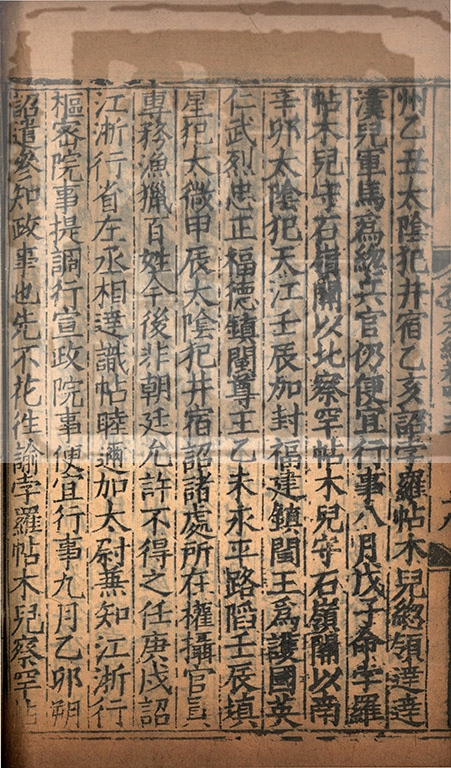 州乙丑太陰犯井宿乙亥詔孛羅帖木兒緫領達達
漢兒軍馬爲緫兵官仍便宜行事八月戊子命孛羅
帖木兒守石嶺關以北察罕帖木兒守石嶺關以南
辛卯太陰犯天江壬辰加封福建鎮閩王爲護國英
仁武烈忠正福德鎮閩尊王乙未永平路陷壬辰填
星犯太微甲辰太陰犯井宿詔諸處所在權攝官員
專務漁獵百姓今後非朝廷允許不得之任庚戌詔
江浙行省左丞相達識帖睦邇加太尉兼知江浙行
樞密院事提調行宣政院事便宜行事九月乙卯朔
詔遣參知政事也先不花徃諭孛羅帖木兒察罕帖